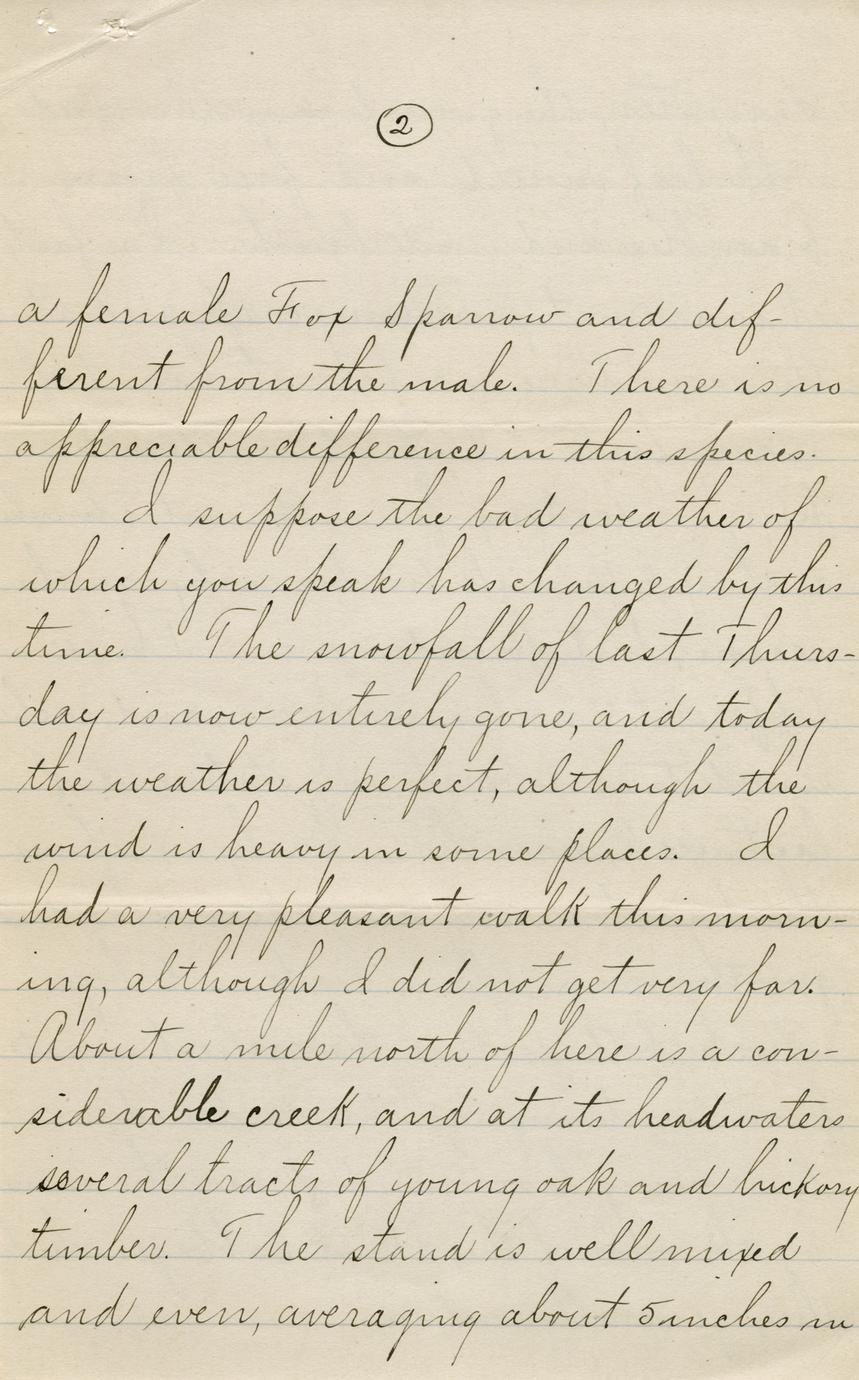 2
a female Fox Sparrow and dif-
ferent from the male. There is no
appreciable difference in this species.
I suppose the bad weather of
which you speak has changed by this
time. The snowfall of last Thurs-
day is now entirely gone, and today
the weather is perfect, although the
wind is heavy in some places. I
had a very pleasant walk this morn-
ing, although I did not get very far.
About a mile north of here is a con-
siderable creek, and at its headwaters
several tracts of young oak and hickory
timber. The stand is well mixed
and even, averaging about 5 inches in